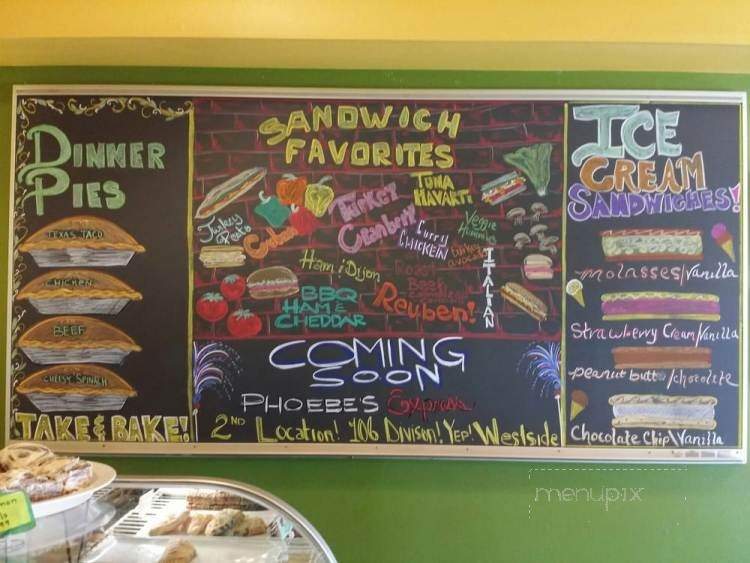 DINNER
PIES
TEXAS TACO
CHICKEN
BEEF
CHEESY SPINACH
TAKE & BAKE!
SANDWICH
FAVORITES
Turkey
Pesto
Turkey
Cranberry
TUNA
HAVARTI
Curry
CHICKEN
Veggie
Hummus
turkey
avocado
Ham & Dijon
Roast
Beef
ITALIAN
BBQ
HAM &
CHEDDAR
Reuben!
COMING
SOON
PHOEBE'S Express
2ND Location! 106 Division! Yep! Westside
ICE
CREAM
SANDWICHES!
molasses/vanilla
Strawberry Cream/Vanilla
peanut butt /chocolate
Chocolate Chip\Vanilla
menupix